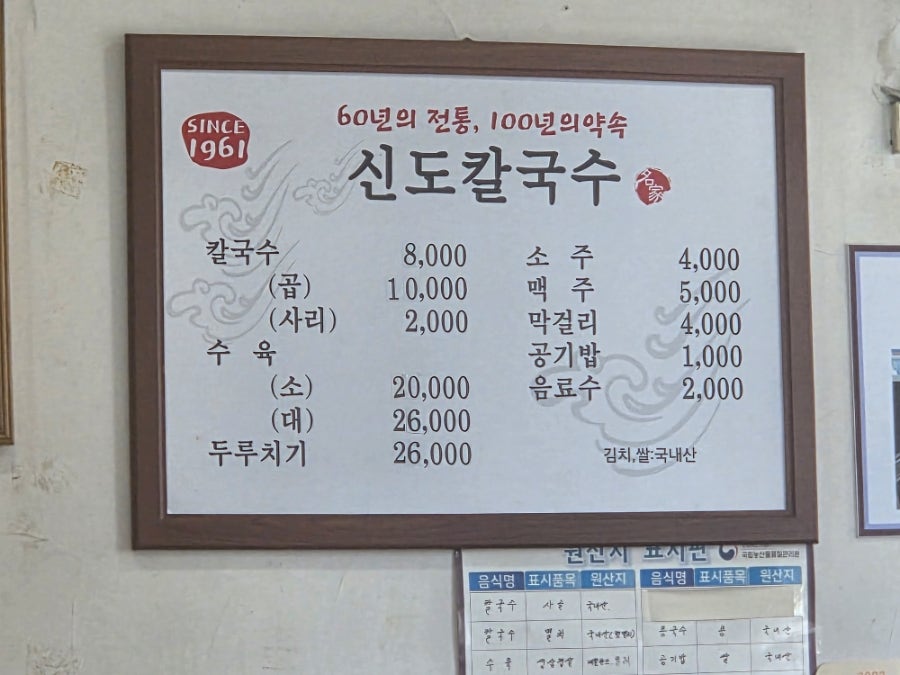 SINCE
1961
60년의 전통, 100년의약속
신도칼국수
名家
칼국수 8,000
(곱) 10,000
(사리) 2,000
수 육
(소) 20,000
(대) 26,000
두루치기 26,000
소 주 4,000
맥 주 5,000
막걸리 4,000
공기밥 1,000
음료수 2,000
김치,쌀:국내산
원산지 표시판
국립농산물품질관리원
음식명 표시품목 원산지
칼국수 사골 국내산
칼국수 멸치
수육
음식명 표시품목 원산지
콩국수 콩 국내산
공기밥 쌀 국내산